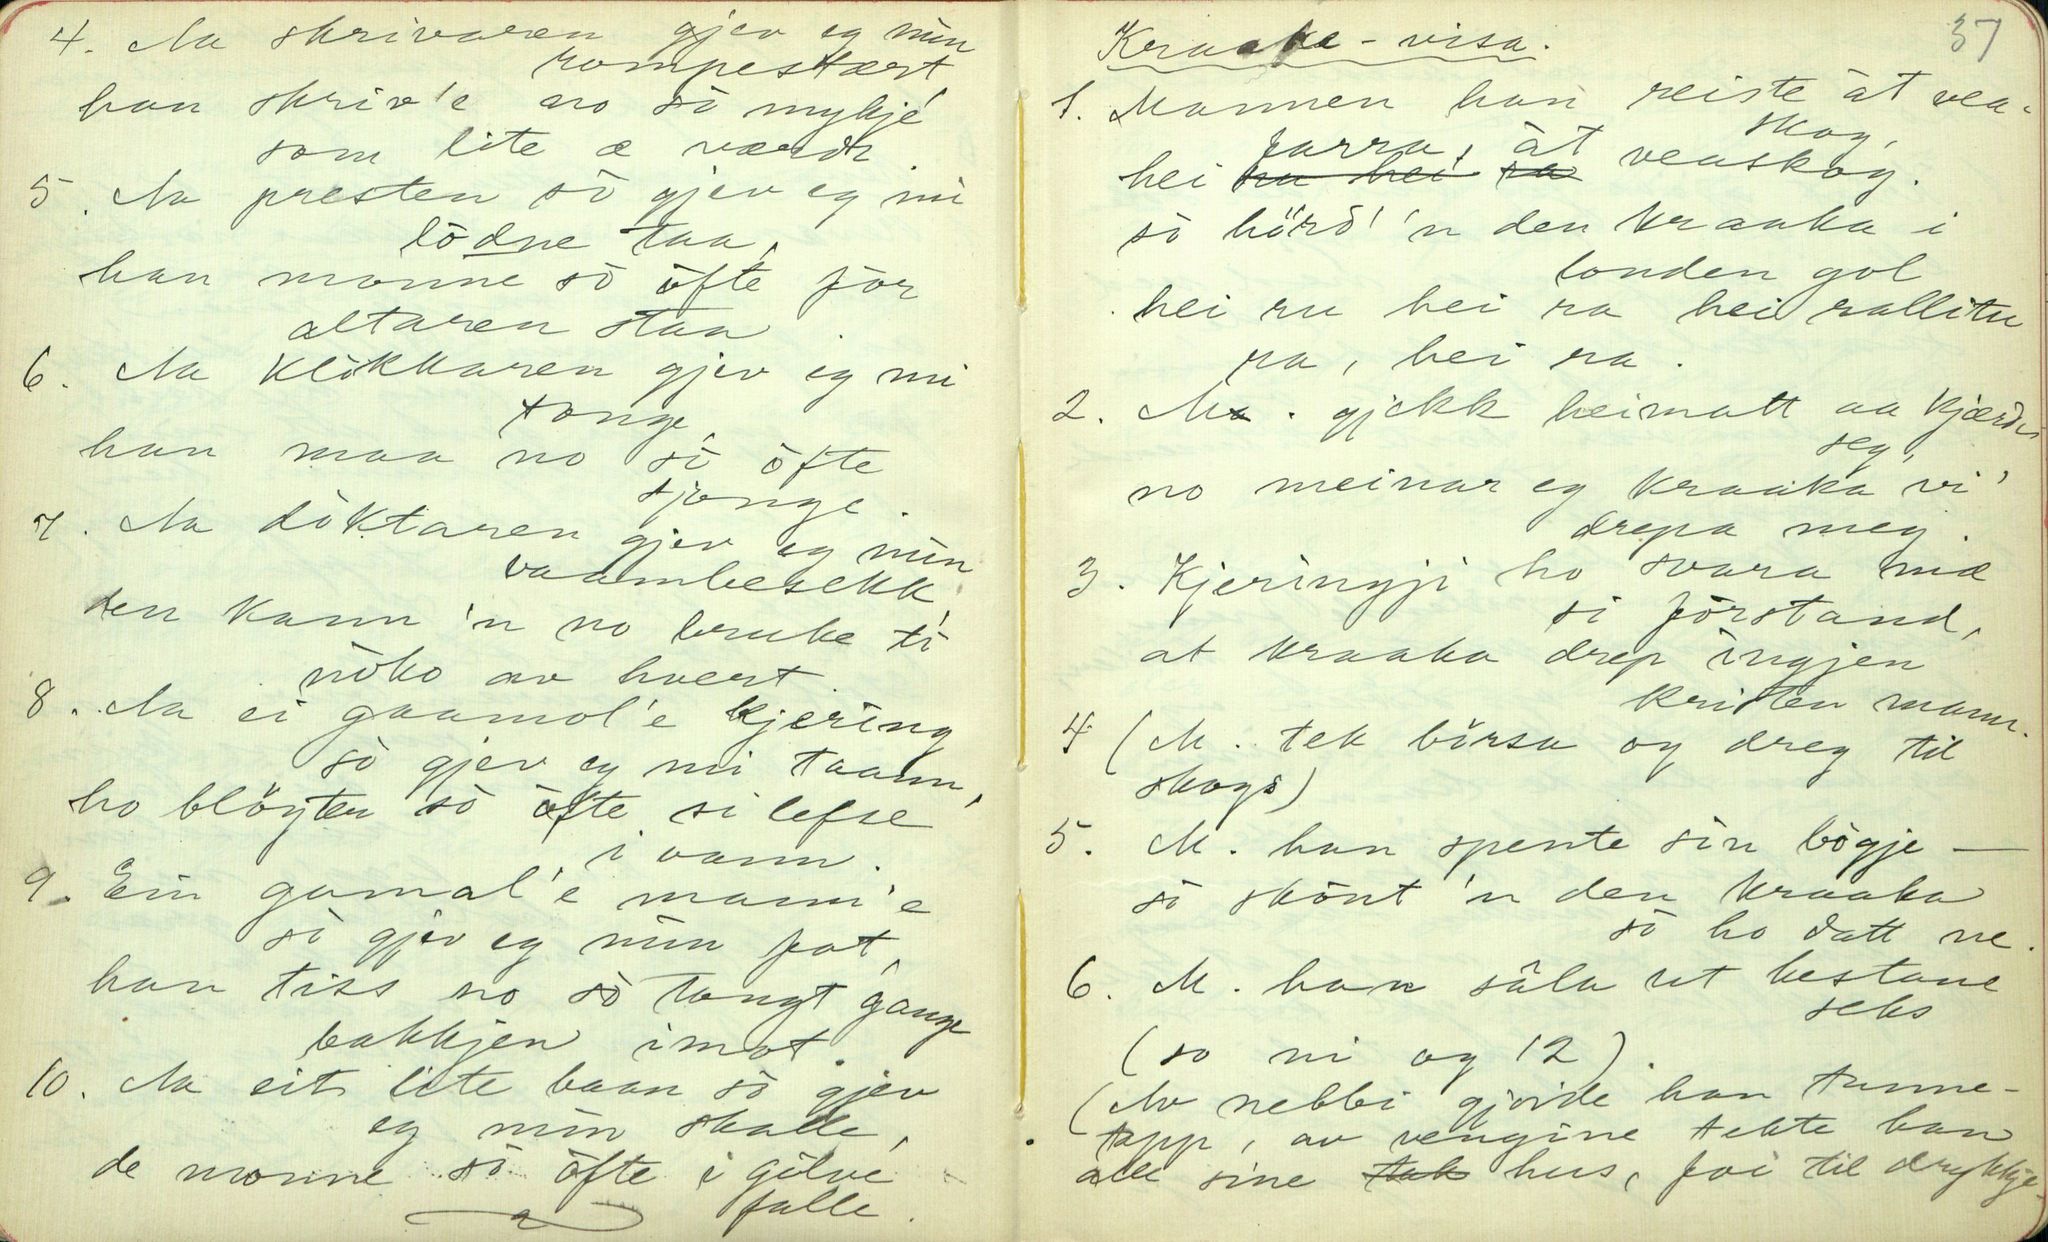 4. Aa skrivaren gjev eg min
rompestært
han skriv'e no so mykjé
som lite æ værdt.
5. Aa presten sò gjev eg mi
lòdne taa,
han monne sò òfte før
altaren staa.
6. Aa klòkkaren gjev eg mi
tonge,
han maa no sò òfte
sjonge.
7. Aa dòktaren gjev eg min
vaambesekk,
den kann 'n no bruke ti
nòko av hvert.
8. Aa ei gaamol'e kjering
sò gjev eg mi taann,
ho blöyter sò òfte si lefse
i vann.
9. Ein gamal'e mann'e
sò gjev eg min fot,
han tiss no sò tongt gange
bakkjen imot.
10. Aa eit lite baan sò gjev
eg min skalle,
de monne sò òfte i gòlvé
falle.
37
Kraake-visa.
1. Mannen han reiste åt vea-
skog,
hei farra, åt veaskog.
sò hörò 'n den kraaka i
londen gol
hei ru hei ra hei rallitu
ra, hei ra.
2. M. gjekk heimatt aa kjærde
seg,
no meinar eg kraaka vi'
drepa meg.
3. Kjeringji ho svara mæ
si förstand,
at kraaka drep ingjen
kristen mann.
4 (M. tek börsa og dreg til
skogs)
5. M. han spente sin bògje —
sò skònt 'n den kraaka
sò ho datt ne.
6. M. han såla ut hestane
seks
(so ni og 12).
(Av nebbi gjorde han tunne-
tapp, av vengine tekte han
alle sine hus, foi til drykkje-